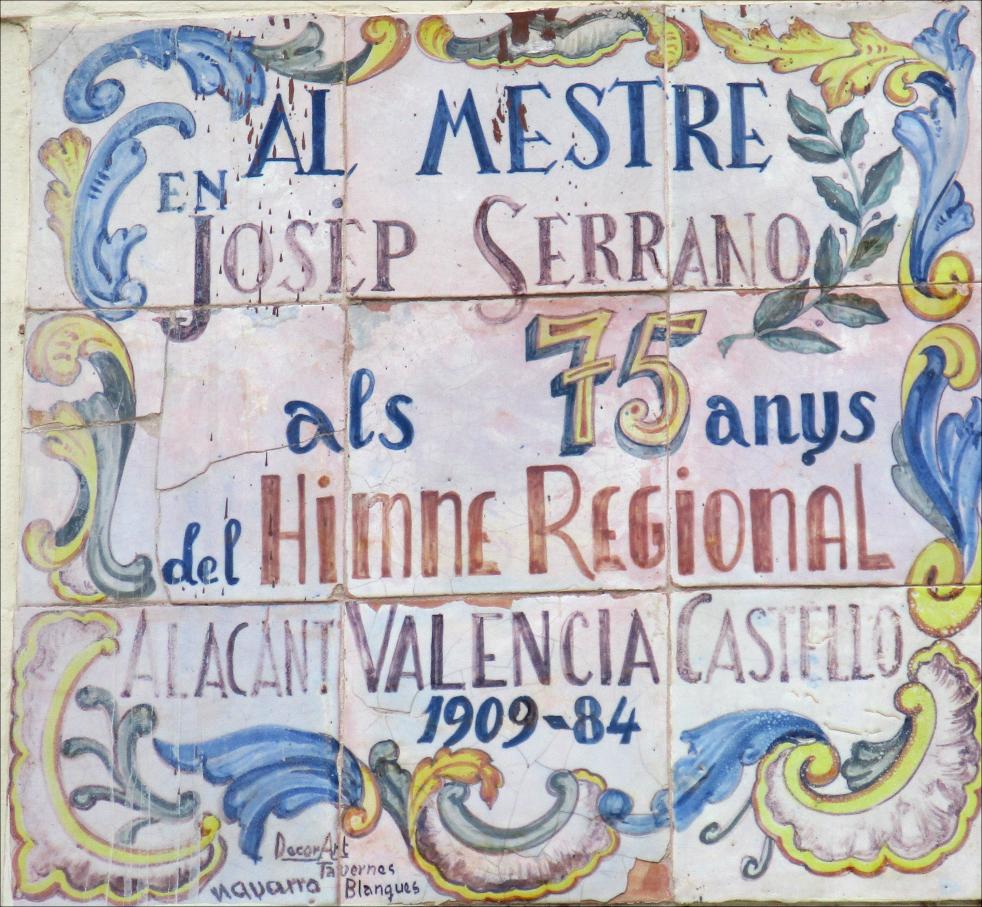 AL MESTRE
EN JOSEP SERRANO
als 75 anys
del HIMNE REGIONAL
ALACANT VALENCIA CASTELLO
1909-84
DecorArt
Tavernes
navarro Blanques